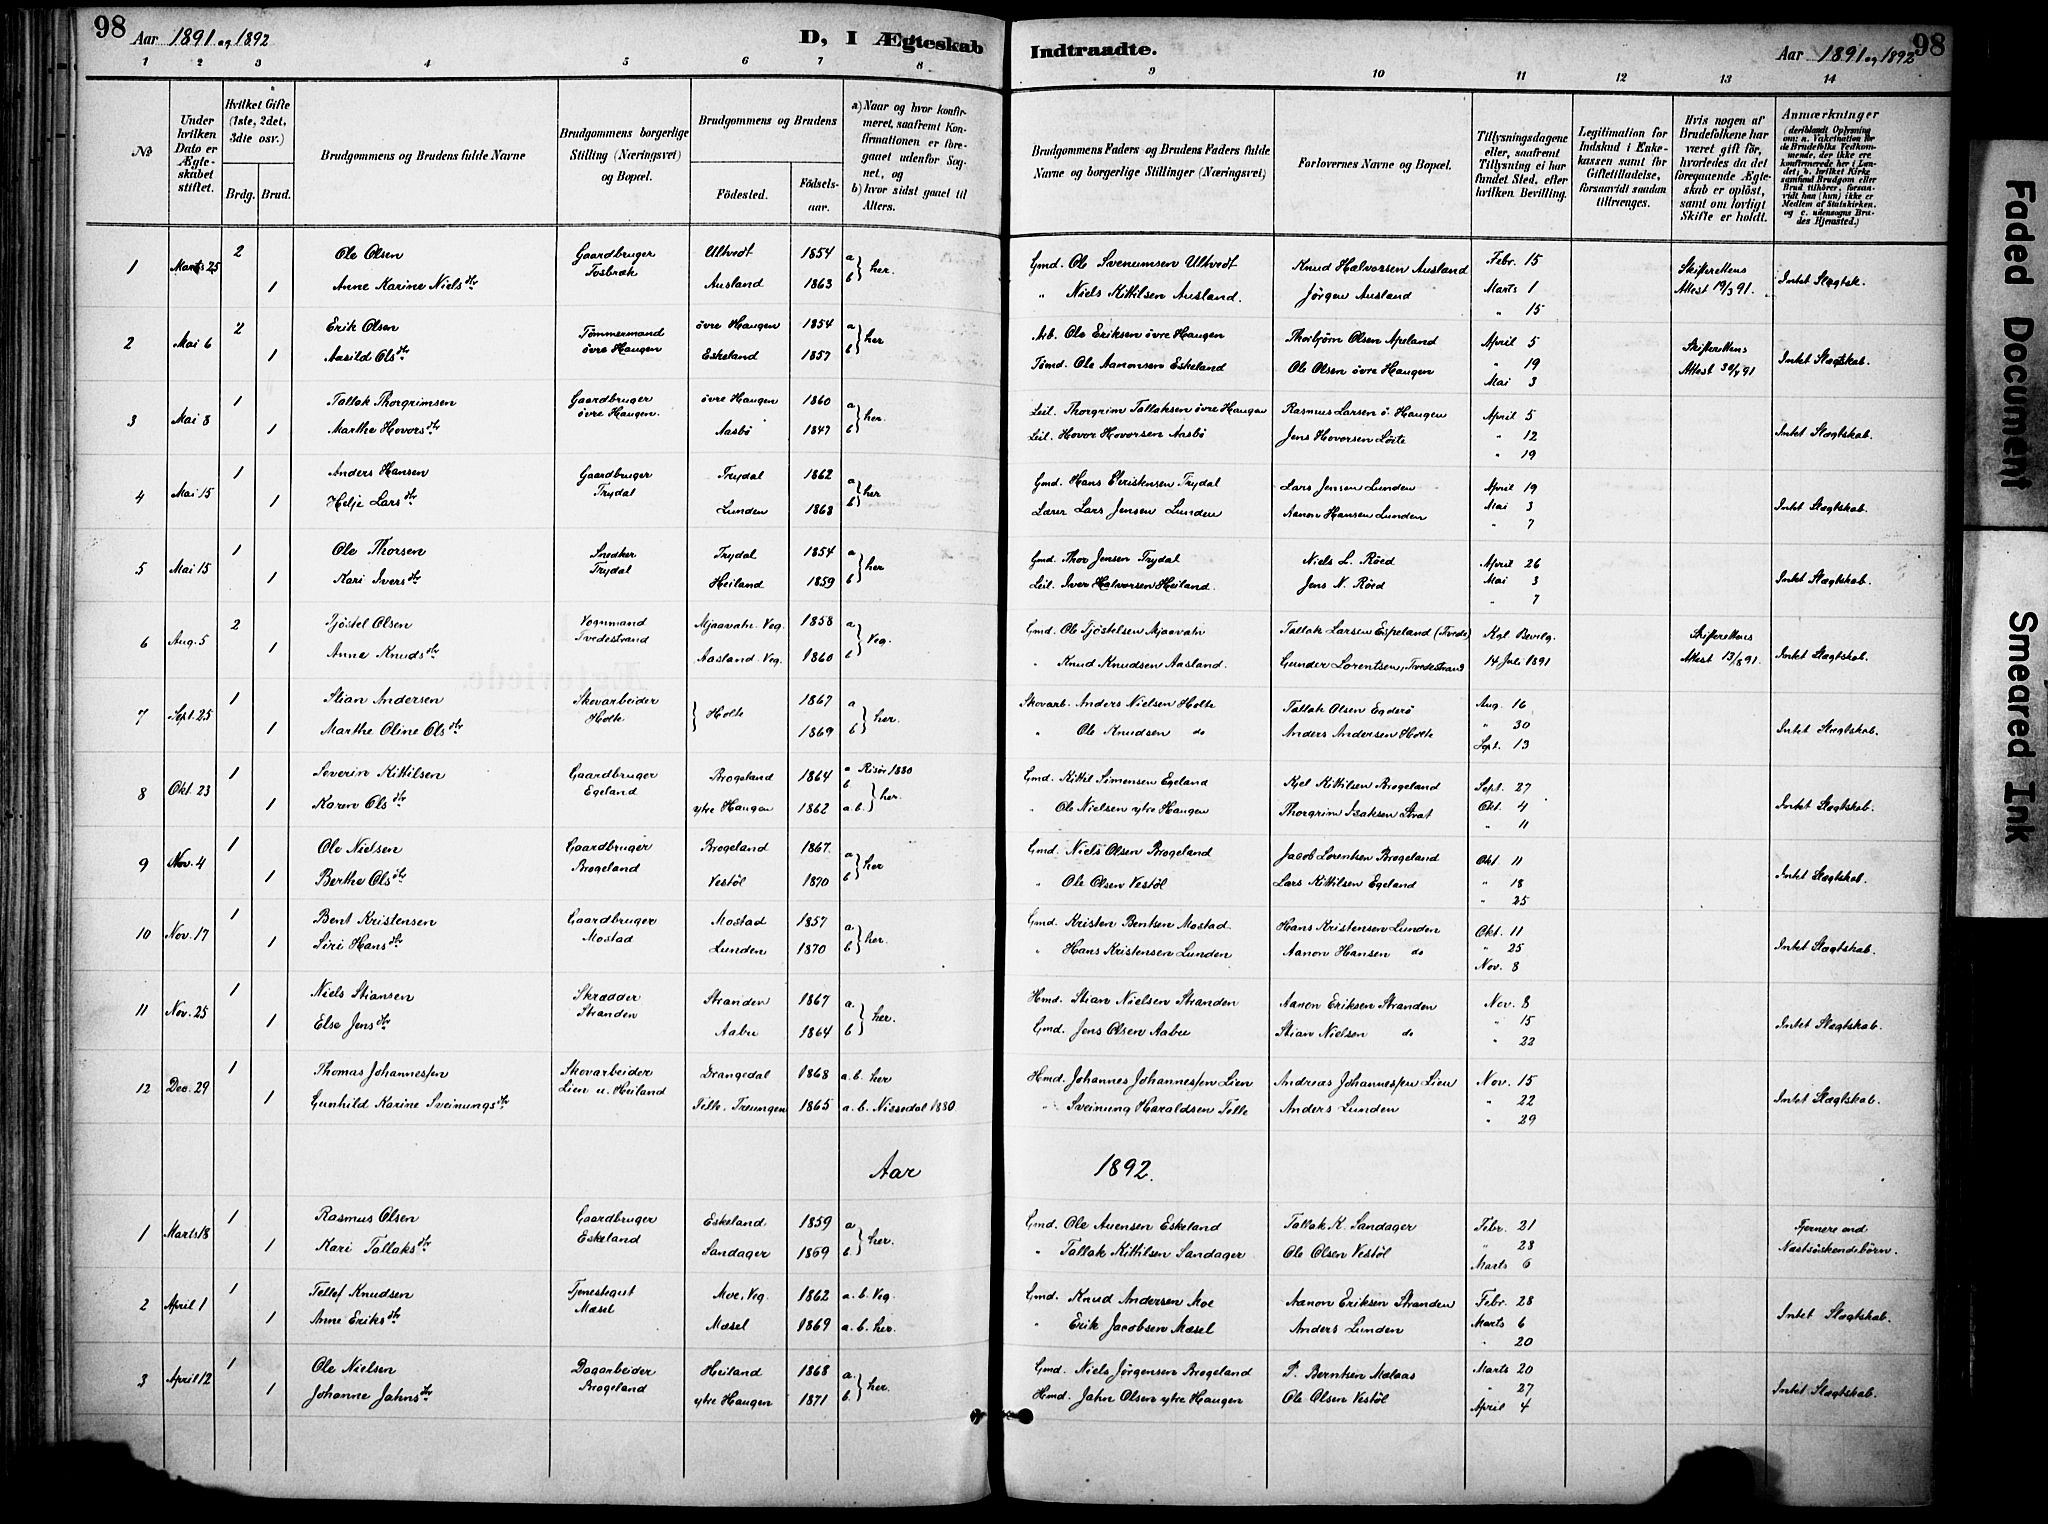 98
Aar 1891 og 1892
D, I Ægteskab
Indtraadte.
Aar 1891 og 1892
98
1 2 3 4 5 6 7 8 9 10 11 12 13 14
No
Under hvilken Dato er Ægteskabet stiftet.
Hvilket Gifte (1ste, 2det, 3die osv.)
Brdg. Brud.
Brudgommens og Brudens fulde Navne
Brudgommens borgerlige Stilling (Næringsvei) og Bopæl.
Brudgommens og Brudens
Fødested.
Fødselsaar.
a) Naar og hvor konfirmeret, saafremt Konfirmationen er foregaaet udenfor Sognet, og
b) hvor sidst gaaet til Alters.
Brudgommens Faders og Brudens Faders fulde Navne og borgerlige Stillinger (Næringsvei)
Forlovernes Navne og Bopæl.
Tillysningsdagene eller, saafremt Tillysning ei har fundet Sted, efter hvilken Bevilling.
Legitimation for Indskud i Enkekassen samt for Giftetilladelse, forsaavidt saadan tiltrænges.
Hvis nogen af Brudefolkene har været gift før, hvorledes da det foregaaende Ægteskab er opløst, samt om lovligt Skifte er holdt.
Anmærkninger
(deriblandt Oplysning om: a. Vakcination for de Brudefolks Vedkommende, der ikke ere konfirmerede her i Landet; b. hvilket Kirkesamfund Brudgom eller Brud tilhører, forsaavidt han (hun) ikke er Medlem af Statskirken, og c. udensogns Brudes Hjemsted.)
1 Marts 25 2 Ole Olsen Gaardbruger Ultvedt 1854 a her. Gmd. Ole Svenumsen Ultvedt Knud Halvorsen Ausland Febr. 15 Skifterettens Intet Slægtsk.
1 Anne Karine Nielsdtr Fosbræk Ausland 1863 b " Niels Kittilsen Ausland. Jörgen Ausland Marts 1 Attest 19/3 91.
" 15
2 Mai 6 2 Erik Olsen Tömmermand övre Haugen 1854 a her Arb. Ole Eriksen övre Haugen Thorbjörn Olsen Apeland April 5 Skifterettens Intet Slægtskab.
1 Aasild Olsdtr övre Haugen Eskeland 1857 b Tömd. Ole Aanonsen Eskeland Ole Olsen övre Haugen " 19 Attest 30/4 91
Mai 3
3 Mai 8 1 Tallak Thorgrimsen Gaardbruger övre Haugen 1860 a her. Leil. Thorgrim Tallaksen övre Haugen Rasmus Larsen ö. Haugen April 5
1 Marthe Hovorsdtr övre Haugen. Aasbö 1847 b Leil. Hovor Hovorsen Aasbö Jens Hovorsen Lörte " 12 Intet Slægtskab.
" 19
4 Mai 15 1 Anders Hansen Gaardbruger Trydal 1862 a her Gmd. Hans Kristensen Trydal Lars Jensen Lunden April 19
1 Helje Larsdtr Trydal Lunden 1868 b Lærer Lars Jensen Lunden Aanon Hansen Lunden Mai 3 Intet Slægtskab.
" 7
5 Mai 15 1 Ole Thorsen Snedker Trydal 1854 a her Gmd. Thor Jensen Trydal Niels L. Röed April 26
1 Kari Iversdtr Trydal Heiland 1859 b Leil. Iver Halvorsen Heiland. Jens N. Röed Mai 3 Intet Slægtskab.
" 7
6 Aug. 5 2 Tjöstel Olsen Vognmand Mjaavatn. Veg. 1858 a Veg. Gmd. Ole Tjöstelsen Mjaavatn Tallak Larsen Espeland (Tvede) Kgl. Bevilg. Skifterettens Intet Slægtskab.
1 Anne Knudsdtr Tvedestrand Aasland. Veg. 1860 b " Knud Knudsen Aasland. Gunder Lorentsen, Tvedestrand 14 Juli 1891 Attest 13/8 91.
7 Sept. 25 1 Stian Andersen Skovarbeider Holte 1867 a her. Skovarb. Anders Nielsen Holte Tallak Olsen Egderö Aug. 16
1 Marthe Oline Olsdtr Holte 1869 b " Ole Knudsen do Anders Andersen Holte " 30 Intet Slægtskab.
Sept. 13
8 Okt. 23 1 Severin Kittilsen Gaardbruger Brogeland 1864 a Risör 1880 Gmd. Kittil Simensen Egeland Kjel Kittilsen Brogeland Sept. 27
b her.
1 Karen Olsdtr Egeland ytre Haugen 1862 a.b. " Ole Nielsen ytre Haugen Thorgrim Isaksen Strat Okt. 4 Intet Slægtskab.
" 11
9 Nov. 4 1 Ole Nielsen Gaardbruger Brogeland 1867. a her Gmd. Niels Olsen Brogeland Jacob Lorentsen Brogeland Okt. 11
1 Berthe Olsdtr Brogeland Vestöl 1870 b " Ole Olsen Vestöl Lars Kittilsen Egeland " 18 Intet Slægtskab.
" 25
10 Nov. 17 1 Bent Kristensen Gaardbruger Mostad 1857 a her. Gmd. Kristen Bentsen Mostad. Hans Kristensen Lunden Okt. 11
1 Siri Hansdtr Mostad Lunden 1870 b " Hans Kristensen Lunden Aanon Hansen do " 25 Intet Slægtskab.
Nov. 8
11 Nov. 25 1 Niels Stiansen Skrædder Stranden 1867 a. her. Hmd. Stian Nielsen Stranden Aanon Eriksen Stranden Nov. 8
1 Else Jensdtr Stranden Aabu 1864 b Gmd. Jens Olsen Aabu Stian Nielsen do " 15 Intet Slægtskab.
" 22
12 Dec. 29 1 Thomas Johannessen Skovarbeider Drangedal 1868 a.b. her Hmd. Johannes Johannessen Lien Andreas Johannessen Lien Nov. 15
1 Gunhild Karine Sveinungsdtr Lien u. Heiland Felle. Treungen 1865 a.b. Nissedal 1880. " Sveinung Haraldsen Felle Anders Lunden " 22 Intet Slægtskab.
" 29
Aar 1892.
1 Marts 18 1 Rasmus Olsen Gaardbruger Eskeland 1859 a her. Gmd. Ole Auensen Eskeland Tallak K. Sandager Febr. 21 Fjernere end
1 Kari Tallaksdtr Eskeland Sandager 1869 b. " Tallak Kittilsen Sandager Ole Olsen Vestöl " 28 Næstsöskendebörn.
Marts 6
2 April 1 1 Tellef Knudsen Tjenestegut Moe, Veg. 1862 a.b. Veg. Gmd. Knud Andersen Moe Aanon Eriksen Stranden Febr. 28
1 Anne Eriksdtr Mæsel Mæsel 1869 a.b. her. " Erik Jacobsen Mæsel Anders Lunden Marts 6 Intet Slægtskab.
" 20
3 April 12 1 Ole Nielsen Dagarbeider Heiland 1868 a her. Gmd. Niels Jörgensen Brogeland P. Berntsen Mælaas Marts 20
1 Johanne Jahnsdtr Brogeland ytre Haugen 1871 b. Hmd. Jahn Olsen ytre Haugen Ole Olsen Vestöl " 27 Intet Slægtskab.
April 4
Faded Document
Smeared Ink